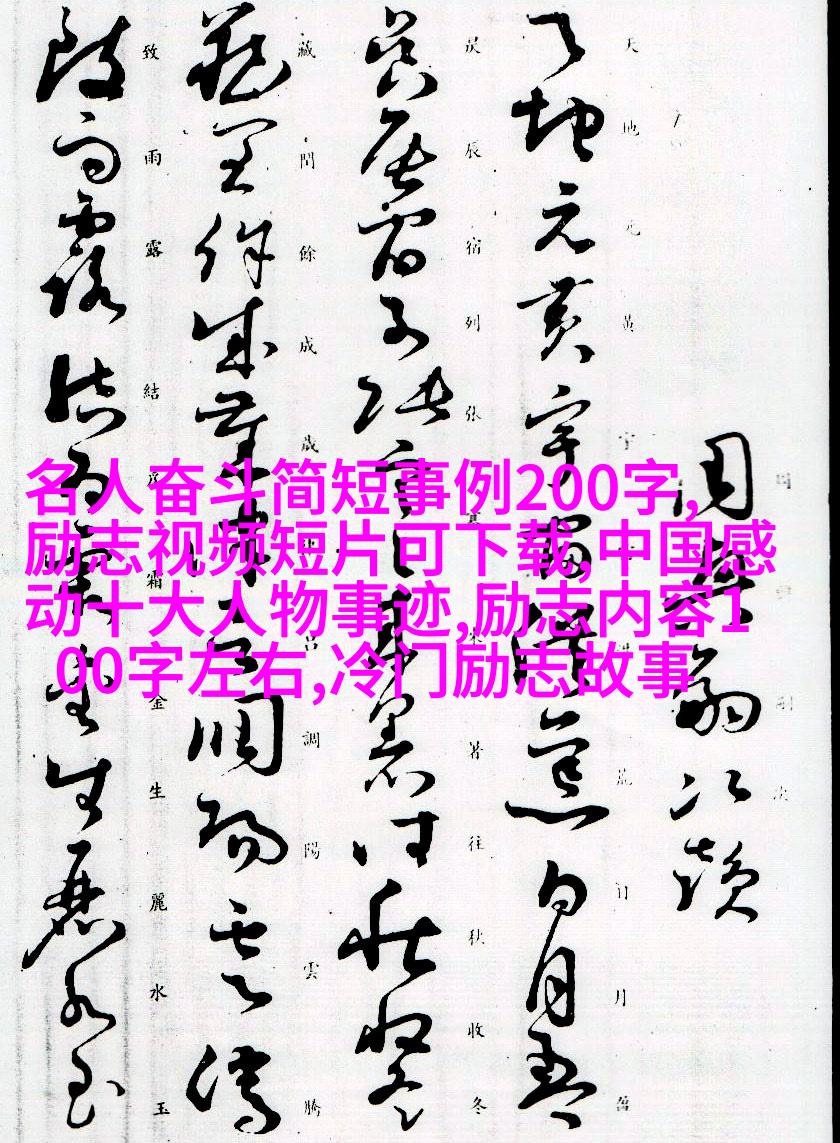 名人奋斗简短事例200字,
励志视频短片可下载,中国感
动十大人物事迹,励志内容1
00字左右,冷门励志故事
周興嗣次韻
天地元黃宇宙洪荒日月盈
昃辰宿列張寒來暑往秋收冬
藏閏餘成歲律呂調陽雲騰
致雨露結為霜金生麗水玉